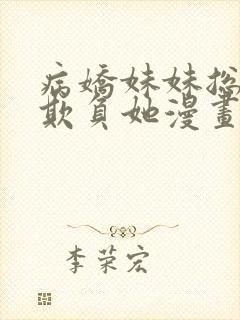 病嬌妹妹总
欺負她漫畫
李荣宏